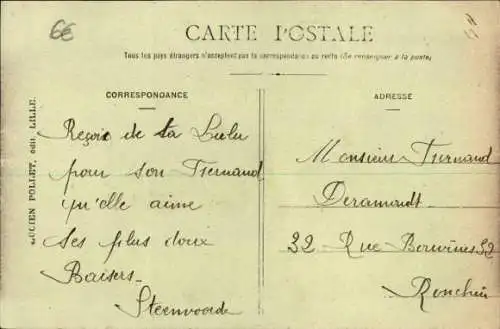 6€
CARTE POSTALE
Tous les pays étrangers n'acceptent pas la correspondance au recto (Se renseigner à la poste)
CORRESPONDANCE
ADRESSE
LUCIEN POLLET, édit. LILLE.
Reçois de ta Lulu
pour son Fernand
qu'elle aime
Ses plus doux
Baisers
Steenvoorde
Monsieur Fernand
Deramoudt
32 Rue 32
Ronchin